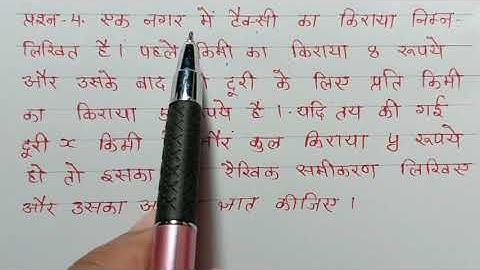 प्रश्न-4. एक नगर में टैक्सी का किराया निम्न-
लिखित है। पहले किमी का किराया 8 रूपये
और उसके बाद दूरी के लिए प्रति किमी
का किराया 5 रूपये है।. यदि तय की गई
दूरी x किमी और कुल किराया y रूपये
हो तो इसका रैखिक समीकरण लिखिए
और उसका ज्ञात कीजिए।